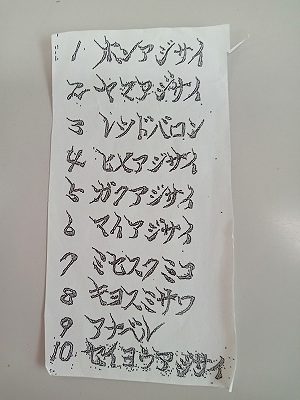 1 ホンアジサイ
2 ヤマアジサイ
3 レッドバロン
4 ヒメアジサイ
5 ガクアジサイ
6 マイアジサイ
7 ミセスクミコ
8 キヨスミサワ
9 アナベレ
10 セイヨウアジサイ